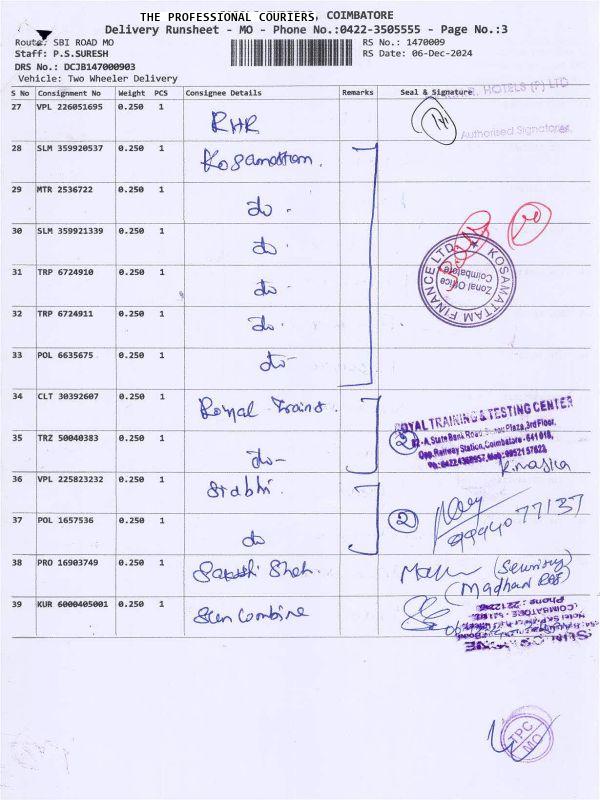 THE PROFESSIONAL COURIERS, COIMBATORE
Delivery Runsheet - MO - Phone No.:0422-3505555 - Page No.:3
Route: SBI ROAD MO
RS No.: 1470009
Staff: P.S.SURESH
RS Date: 06-Dec-2024
DRS No.: DCJB147000903
Vehicle: Two Wheeler Delivery
S No Consignment No Weight PCS Consignee Details Remarks Seal & Signature
HOTELS (P) LTD
27 VPL 226051695 0.250 1 RHR
Authorised Signatory
28 SLM 359920537 0.250 1 Kosamattam.
29 MTR 2536722 0.250 1 do -
30 SLM 359921339 0.250 1 do -
KOSAMATTAM FINANCE LTD
Zonal Office
Coimbatore
31 TRP 6724910 0.250 1 do -
32 TRP 6724911 0.250 1 do -
33 POL 6635675 0.250 1 do -
34 CLT 30392607 0.250 1 Royal Trains.
ROYAL TRAINING & TESTING CENTER
A, State Bank Road, Plaza, 3rd Floor,
Opp. Railway Station, Coimbatore - 641 018,
2
35 TRZ 50040383 0.250 1 do-
36 VPL 225823232 0.250 1 Srabhi.
37 POL 1657536 0.250 1 do
2
99940 77137
38 PRO 16903749 0.250 1 Sakthi Shah.
(Security)
(Madhan
39 KUR 6000405001 0.250 1 Sun Combine
TPC
MO